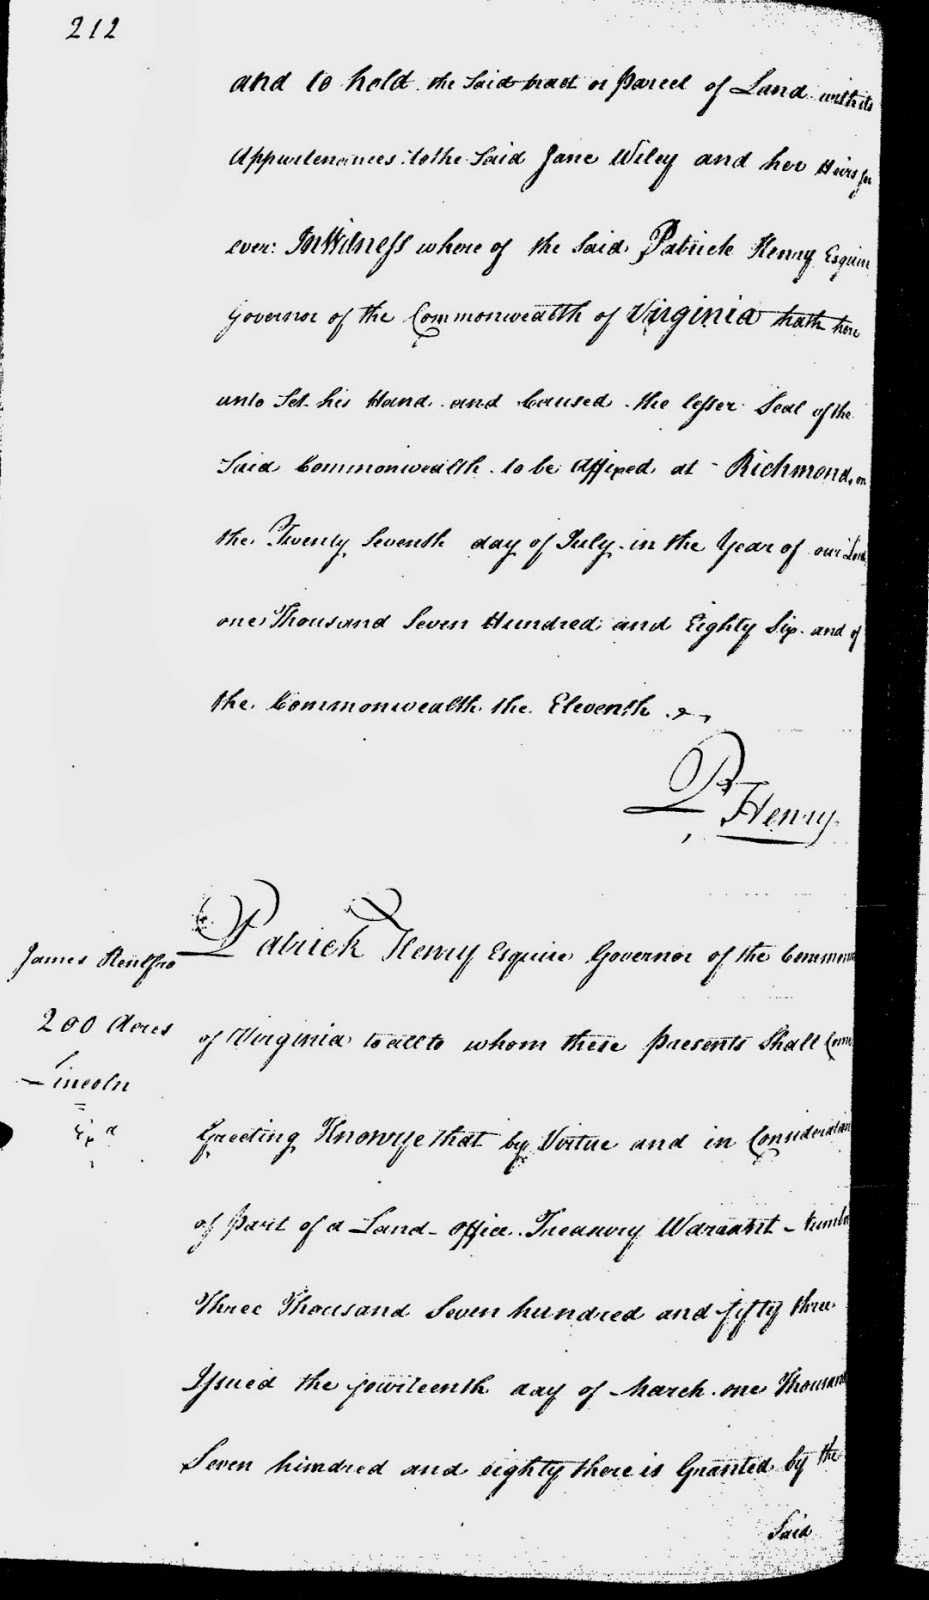 212
and to hold the Said tract or Parcel of Land with its
Appurtenances to the Said Jane Wiley and her Heirs for
ever: In Witness where of the Said Patrick Henry Esquire
Governor of the Commonwealth of Virginia hath here
unto Set his Hand and Caused the lesser Seal of the
Said Commonwealth to be Affixed at Richmond, on
the Twenty Seventh day of July in the Year of our Lord
one Thousand Seven Hundred and Eighty Six and of
the Commonwealth the Eleventh
P Henry
James Rentfro
200 Acres
Lincoln
Exd
Patrick Henry Esquire Governor of the Common
of Virginia to all to whom these Presents Shall Come
Greeting Know ye that by Virtue and in Consideration
of Part of a Land Office Treasury Warrant Numb
Three Thousand Seven hundred and fifty three
Issued the fourteenth day of March one Thousand
Seven hundred and eighty there is Granted by the
Said